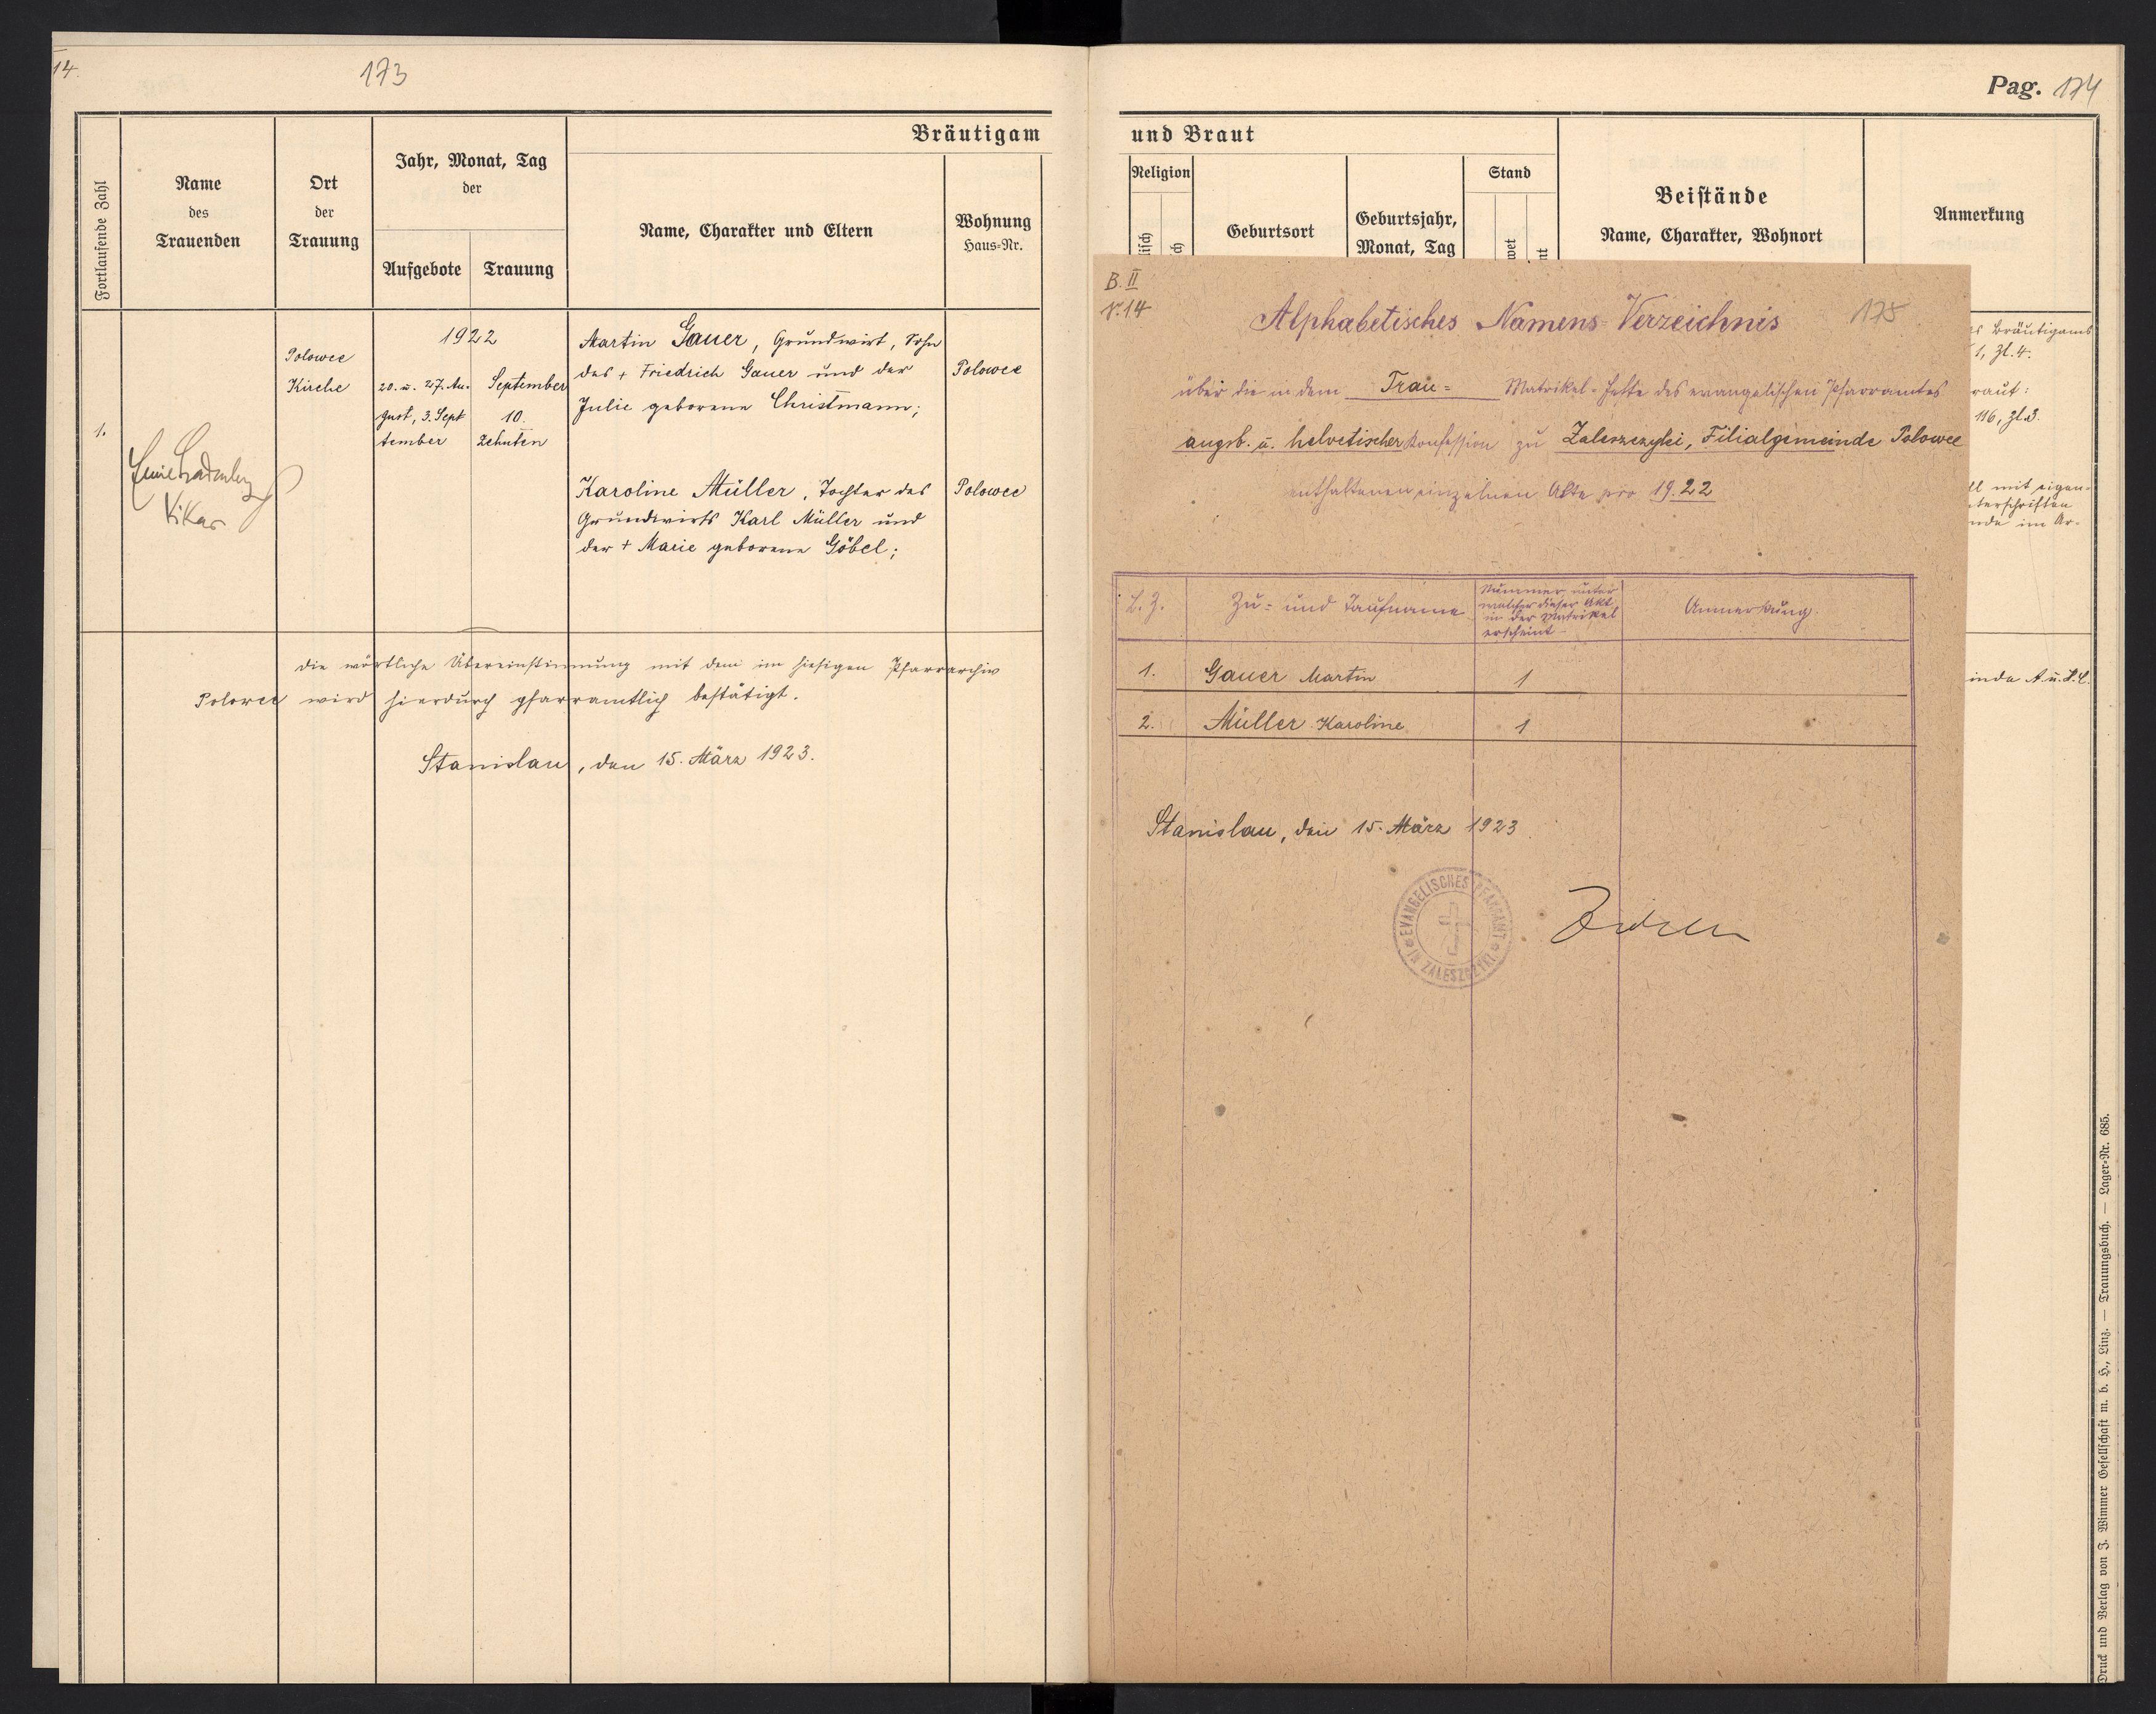 14.
173
Bräutigam
Fortlaufende Zahl
Name
des
Trauenden
Ort
der
Trauung
Jahr, Monat, Tag
der
Aufgebote
Trauung
Name, Charakter und Eltern
Wohnung
Haus-Nr.
1.
Vikar
Polowce
Kirche
1922
20. u. 27. Au-
gust, 3. Sept
tember
September
10.
zehnten
Martin Gauer, Grundwirt, Sohn
des + Friedrich Gauer und der
Julie geborene Christmann;
Polowce
Karoline Müller, Tochter des
Grundwirts Karl Müller und
der + Marie geborene Göbel;
Polowce
Die wörtliche Übereinstimmung mit dem im hiesigen Pfarrarchiv
Polowce wird hierdurch pfarramtlich bestätigt.
Stanislau, den 15. März 1923.
Pag. 174
und Braut
Religion
isch
ch
Geburtsort
Geburtsjahr,
Monat, Tag
Stand
wet
nt
Beistände
Name, Charakter, Wohnort
Anmerkung
s Bräutigams
1, Zl. 4.
raut:
116, Zl. 3.
ll mit eigen-
terschriften
nde im Ar-
inde A. u. H. C.
B. II
Nr. 14
Alphabetisches Namens-Verzeichnis
175
über die in dem Trau= Matrikel-Hefte des evangelischen Pfarramtes
augsb. u. helvetischer Konfession zu Zaleszczyki, Filialgemeinde Polowce
enthaltenen einzelnen Akte pro 1922
L. Z.
Zu= und Taufname
Nummer unter
welcher dieser Akt
in der Matrikel
erscheint
Anmerkung.
1. Gauer Martin 1
2. Müller Karoline 1
Stanislau, den 15. März 1923.
EVANGELISCHES PFARRAMT
IN ZALESZCZYKI
Druck und Verlag von J. Wimmer Gesellschaft m. b. H., Linz. — Trauungsbuch. — Lager-Nr. 685.